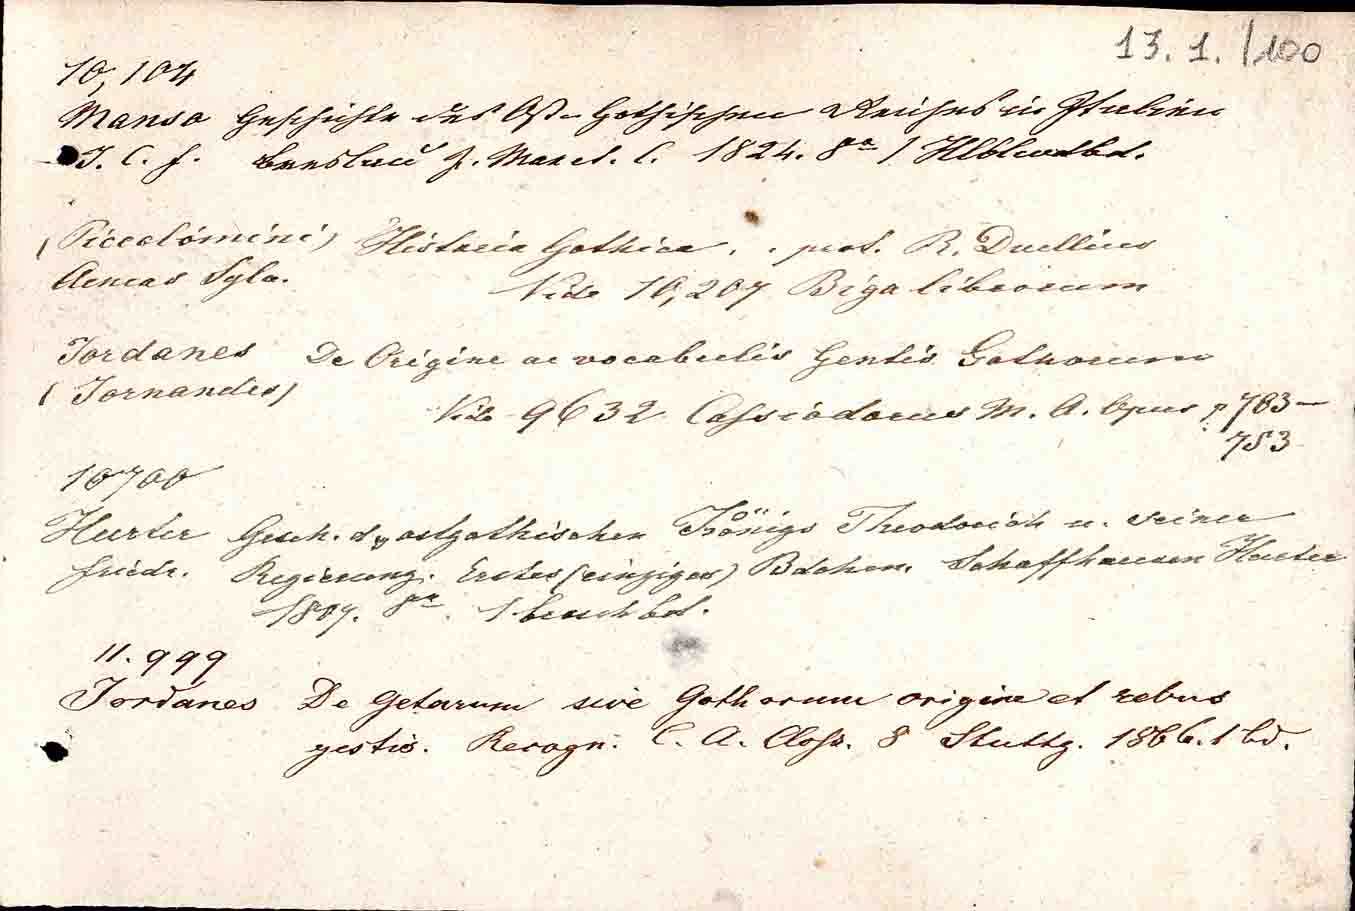 13. 1. /100
10,104
Manso Geschichte des Ost-Gothischen Reiches in Italien
J. C. f. Breslau J. Max et. C. 1824. 8vo 1 Hlblwdbd.
(Piccolómini) Historia Gothica. . prof. R. Duellius
Aeneas Sylv. Vide 10,207 Biga librorum
Jordanes De Origine ac vocabulis Gentis Gothorum
(Jornandes)
Vide 9632 Cassiodorus M. A. Opus p 703—
753
10700
Hurter Gesch. d. ostgothischen Königs Theodorich u. seiner
friedr. Regierung. Erstes (einziges) Bdchen. Schaffhausen Hurter
1807. 8vo. 1 broschbd.
11.999
Jordanes De Getarum sive Gothorum origine et rebus
gestis. Recogn. C. A. Closs. 8 Stuttg. 1866. 1 bd.